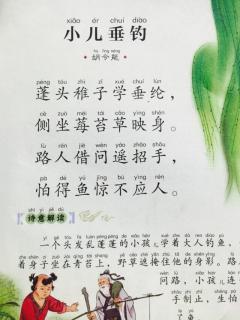 xiǎo ér chuí diào
小儿垂钓
hú lìng néng
·胡令能·
péng tóu zhì zǐ xué chuí lún
蓬头稚子学垂纶，
cè zuò méi tái cǎo yìng shēn
侧坐莓苔草映身。
lù rén jiè wèn yáo zhāo shǒu
路人借问遥招手，
pà dé yú jīng bú yìng rén
怕得鱼惊不应人。
shī yì jiě dú
诗意解读
一个头发乱蓬蓬的小孩儿学着大人钓鱼，
着身子坐在青苔上，野草遮掩住他的身影。路
问路，小孩儿连
手制止，生怕